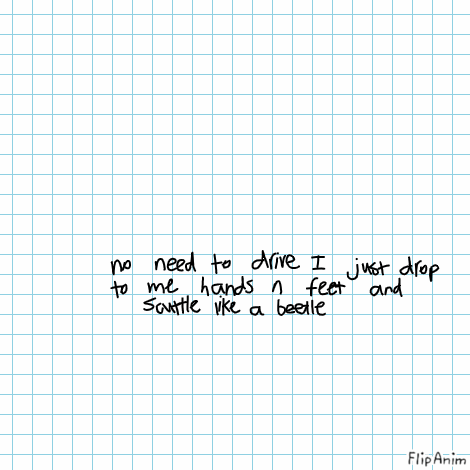 no need to drive I just drop
to me hands n feet and
scuttle like a beetle
FlipAnim